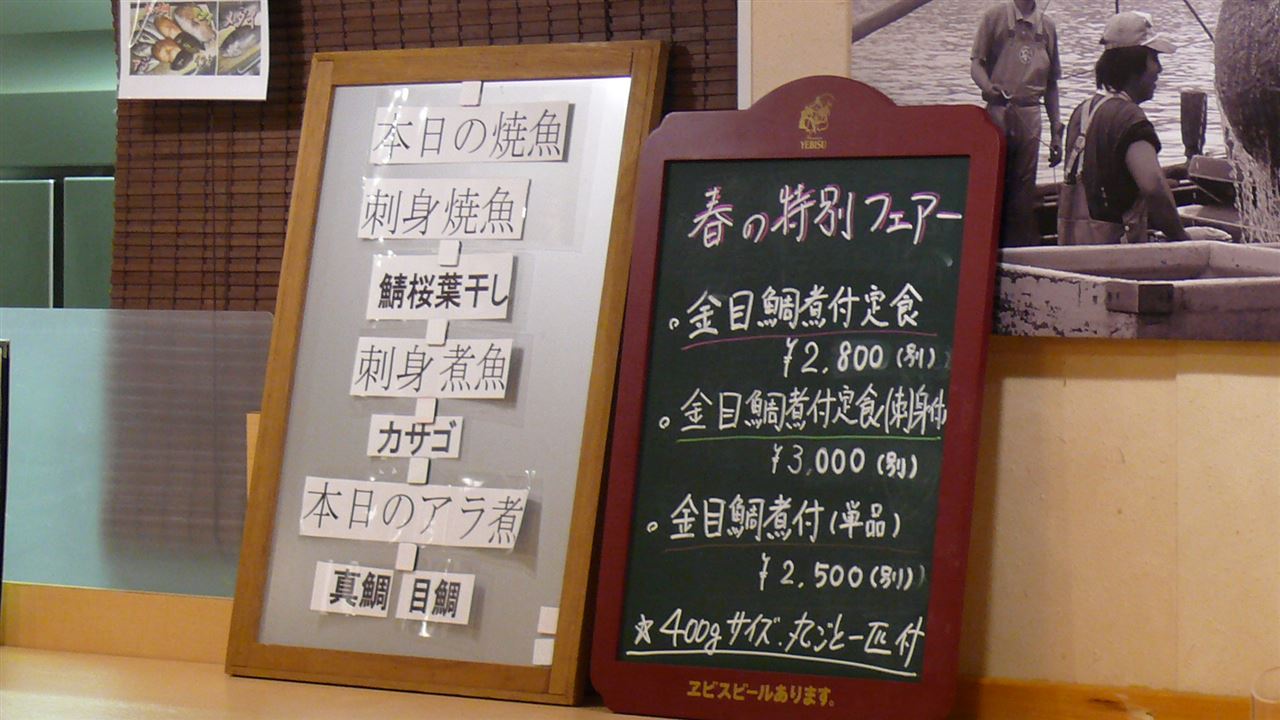 本日の焼魚
刺身焼魚
鯖桜葉干し
刺身煮魚
カサゴ
本日のアラ煮
真鯛 目鯛
YEBISU
春の特別フェアー
。金目鯛煮付定食
¥2,800(別)
。金目鯛煮付定食(刺身付)
¥3,000(別)
。金目鯛煮付(単品)
¥2,500(別)
☆400gサイズ.丸ごと一匹付
ヱビスビールあります。